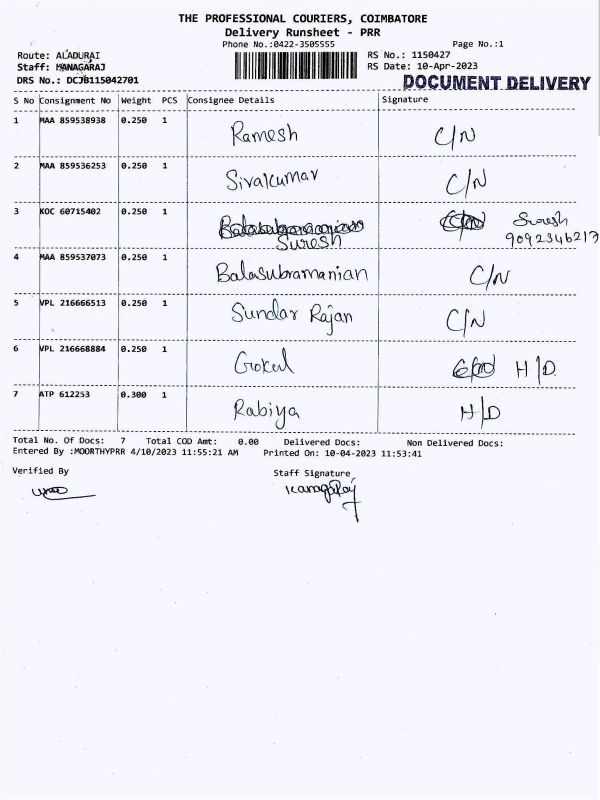 THE PROFESSIONAL COURIERS, COIMBATORE
Delivery Runsheet - PRR
Phone No.:0422-3505555 Page No.:1
Route: ALADURAI RS No.: 1150427
Staff: KANAGARAJ RS Date: 10-Apr-2023
DRS No.: DCJB115042701 DOCUMENT DELIVERY
S No Consignment No Weight PCS Consignee Details Signature
1 MAA 859538938 0.250 1 Ramesh C/N
2 MAA 859536253 0.250 1 Sivakumar C/N
3 KOC 60715402 0.250 1 Suresh Suresh
9092346217
4 MAA 859537073 0.250 1 Balasubramanian C/N
5 VPL 216666513 0.250 1 Sundar Rajan C/N
6 VPL 216668884 0.250 1 Gokul H/D
7 ATP 612253 0.300 1 Rabiya H/D
Total No. Of Docs: 7 Total COD Amt: 0.00 Delivered Docs: Non Delivered Docs:
Entered By :MOORTHYPRR 4/10/2023 11:55:21 AM Printed On: 10-04-2023 11:53:41
Verified By Staff Signature
KanagaRaj